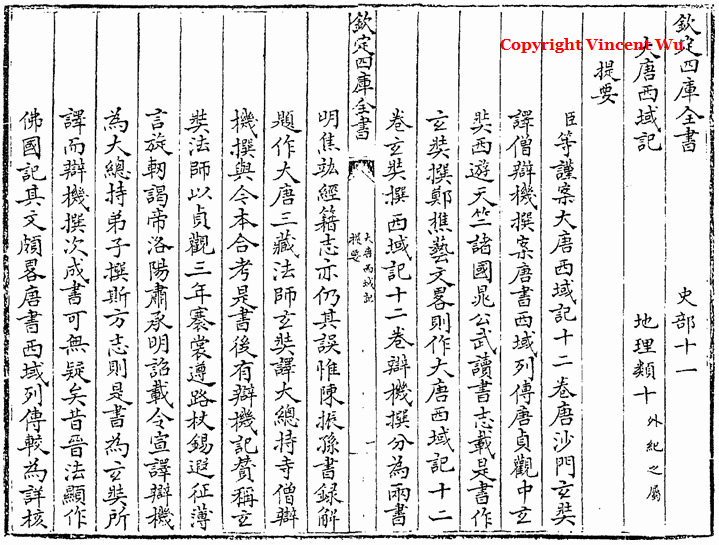 Copyright Vincent Wu
欽定四庫全書 史部十一
大唐西域記 地理類十 外紀之屬
提要
臣等謹案大唐西域記十二卷唐沙門玄奘
譯僧辯機撰案唐書西域列傳唐貞觀中玄
奘西遊天竺諸國晁公武讀書志載是書作
玄奘撰鄭樵藝文畧則作大唐西域記十二
卷玄奘撰西域記十二卷辯機撰分為兩書
欽定四庫全書
大唐西域記
提要
一
明焦竑經籍志亦仍其誤惟陳振孫書録解
題作大唐三藏法師玄奘譯大總持寺僧辯
機撰與今本合考是書後有辯機記賛稱玄
奘法師以貞觀三年褰裳遵路杖錫遐征薄
言旋軔謁帝洛陽肅承明詔載令宣譯辯機
為大總持弟子撰斯方志則是書為玄奘所
譯而辯機撰次成書可無疑矣昔晉法顯作
佛國記其文頗畧唐書西域列傳較為詳核